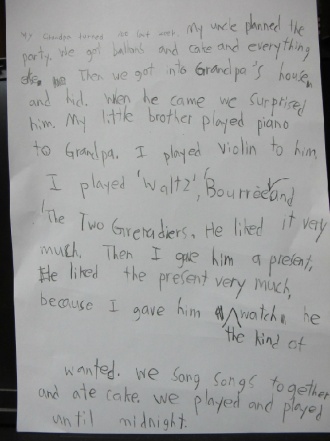 My Grandpa turned last week. My uncle planned the
party. We got ballons and cake and everything
Then we got into Grandpa's house
and hid. When he came we surprised
him. My little brother played piano
to Grandpa. I played violin to him
I played 'Waltz', 'Bourrée' and
'The Two Grenadiers. He liked it very
much. Then I gave him a present,
He liked the present very much,
because I gave him watch he
the kind of
wanted. We song songs together
and ate cake. we played and played
until midnight.